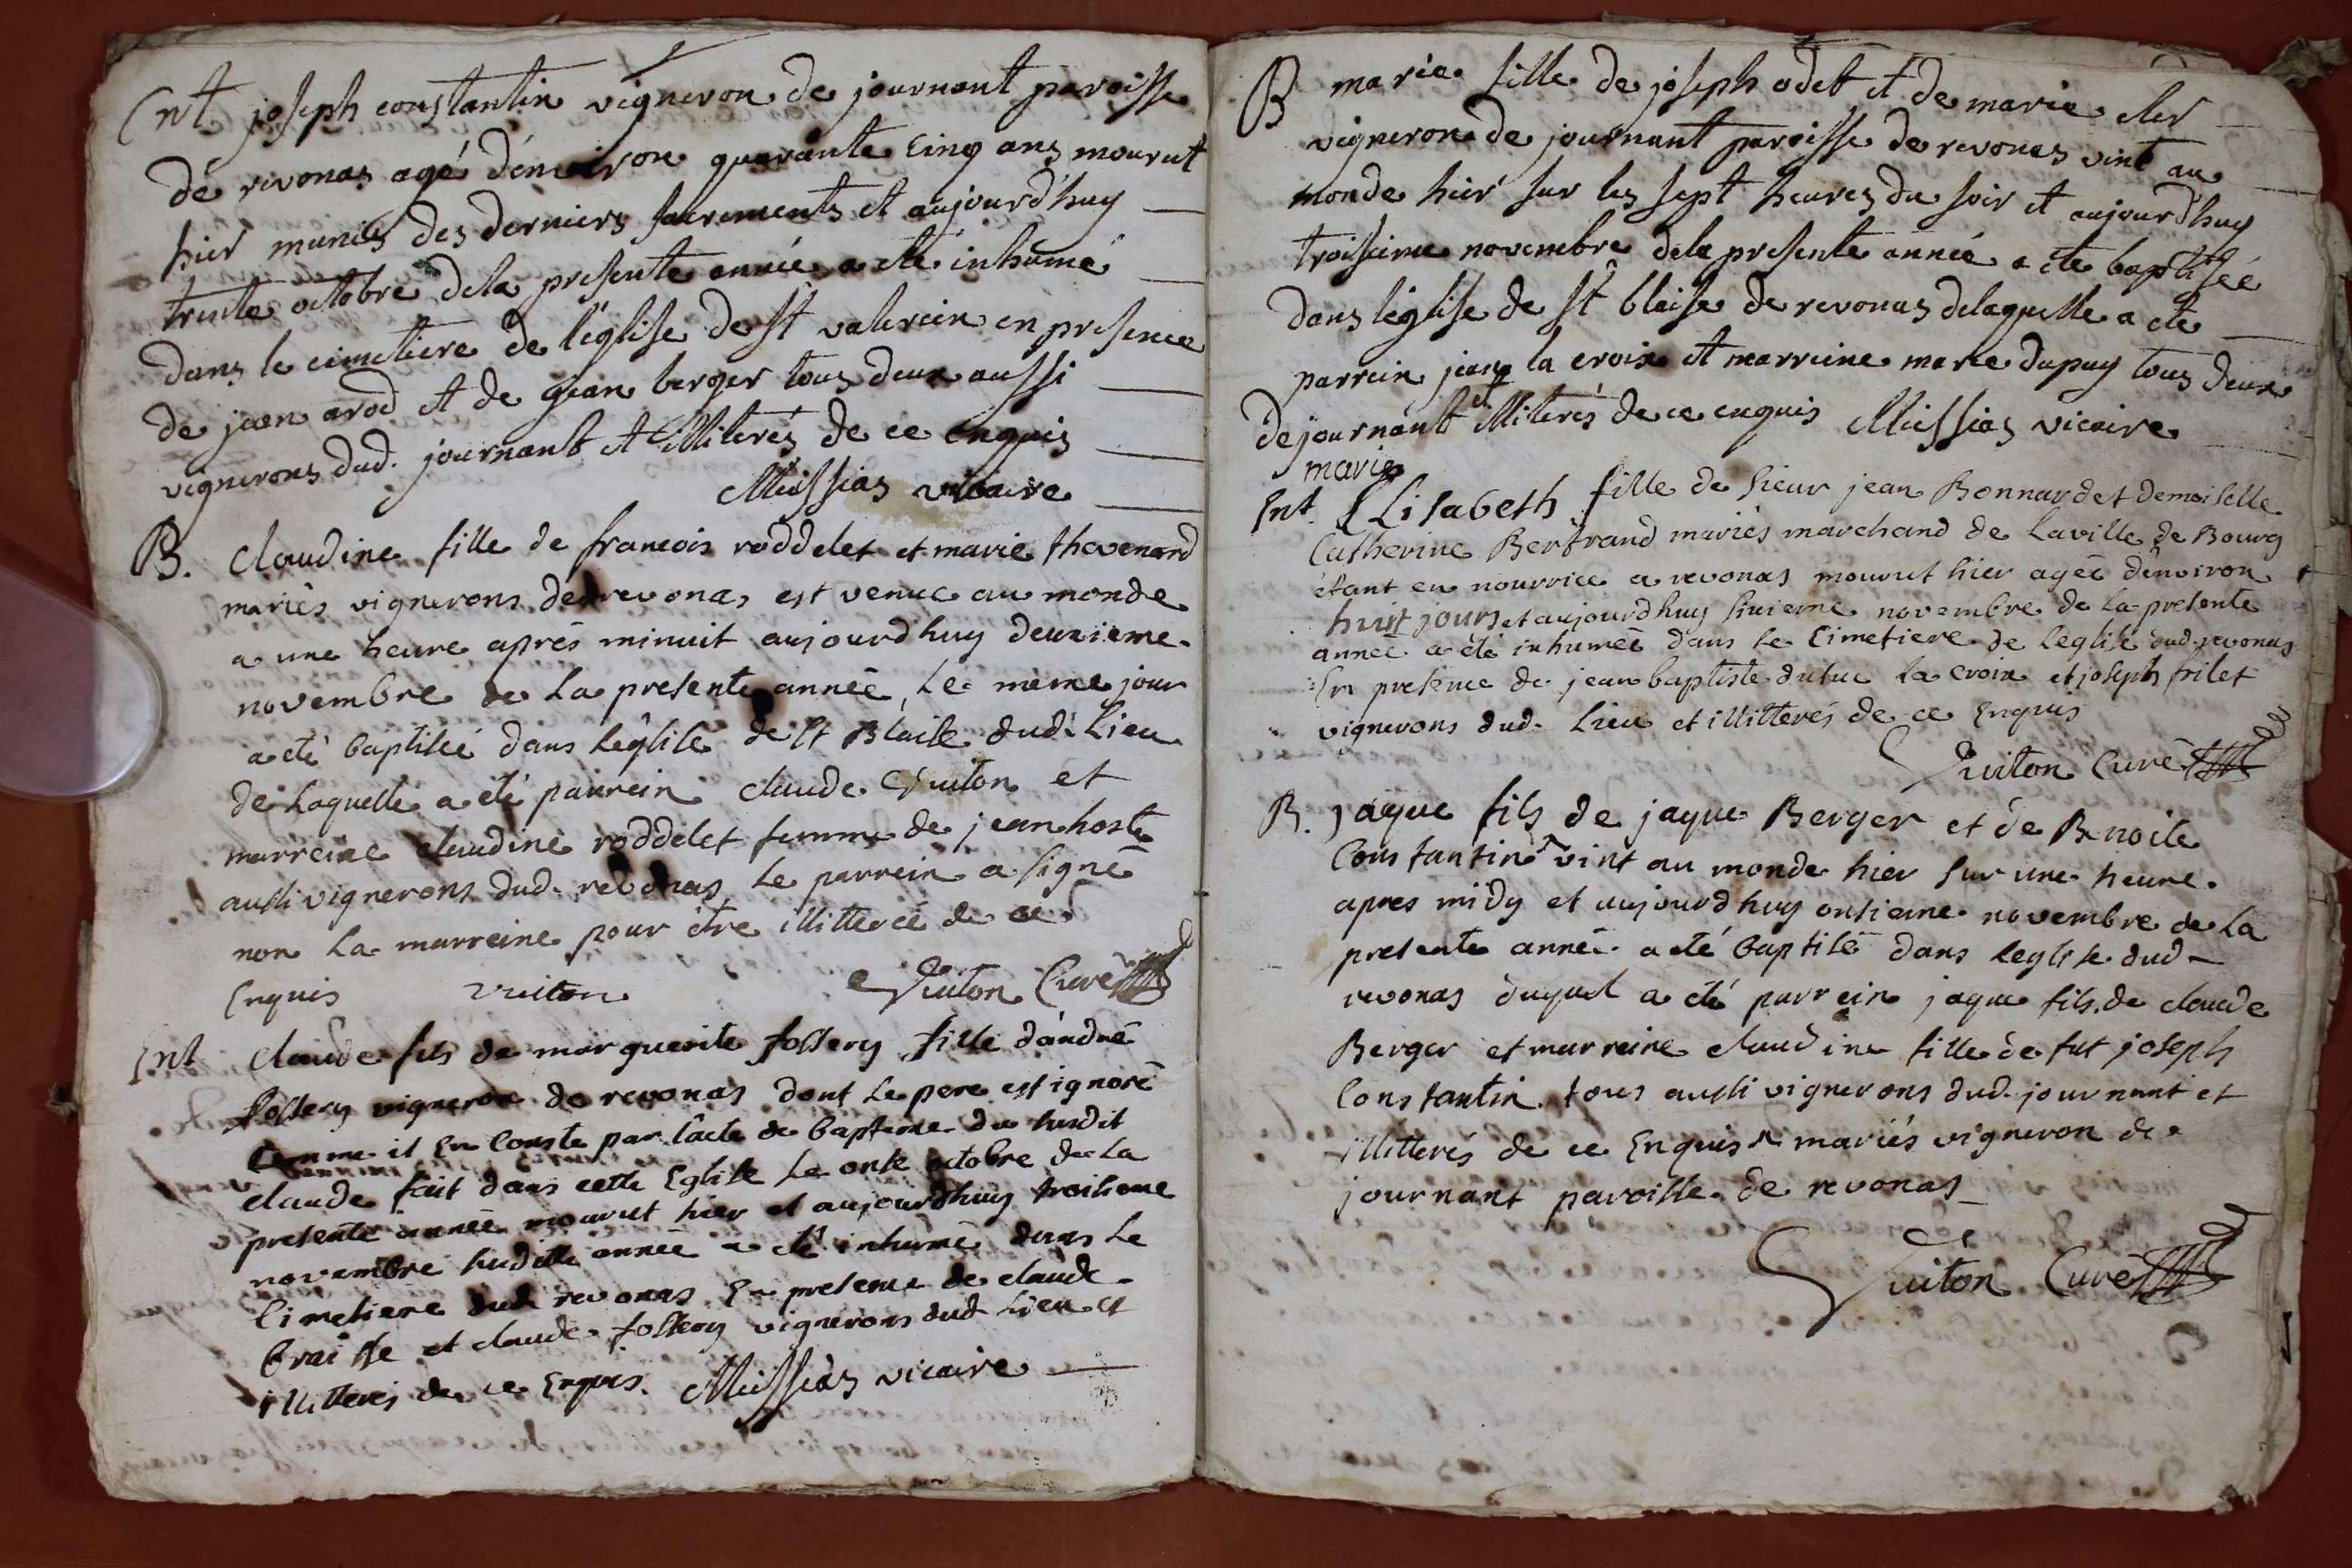 Ent. joseph constantin vigneron de journant paroisse
de revonas agé d'environ quarante cinq ans mourut
hier munis des derniers sacrements et aujourd'huy
trente octobre dela presente année a eté inhumé
dans le cimetiere de l'église de St valerien en presence
de jean arod et de jean berger tous deux aussi
vignerons dud. journant et illiterés de ce enquis
Messias vicaire
B. Claudine fille de francois roddelet et marie thevenard
mariés vignerons de revonas est venue au monde
a une heure aprés minuit aujourdhuy deuxieme
novembre de la presente année, le meme jour
a eté baptisée dans leglise de St Blaise dud. Lieu
de Laquelle a eté parrein claude Vuiton et
marreine claudine roddelet femme de jean hoste
aussi vignerons dud. revonas le parrein a signé
non La marreine pour étre illitterée de ce
Enquis Vuiton Vuiton Curé
Ent Claude fils de marguerite follery fille d'andré
follery vigneron de revonas dont le pere est ignoré
Comme il En Conste par lacte de bapteme du susdit
claude fait dans cette Eglise Le onse octobre de La
presente année mourut hier et aujourdhuy troisieme
novembre susditte année a eté inhumé dans Le
Cimetiere dud revonas En presence de claude
braisse et claude follery vignerons dud Lieu et
illitterés de ce Enquis. Messias vicaire
B marie fille de joseph odet et de marie cler
vigneron de journant paroisse de revonas vint au
monde hier sur les sept heures du soir et aujourd'huy
troisieme novembre dela presente année a eté baptisée
dans léglise de St blaise de revonas delaquelle a eté
parrein jean la croix et marreine marie dupuy tous deux
de journant et illiterés de ce enquis Messias vicaire
marie
Ent. Elisabeth fille de sieur jean Bonnardet demoiselle
Catherine Bertrand mariés marchand de Laville de Bourg
étant en nourrice a revonas mourut hier agée d'environ
huit jours et aujourdhuy sixieme novembre de la presente
année a eté inhumée dans le Cimetiere de Leglise dud. revonas
En presence de jean baptiste dutuc la croix et joseph frilet
vignerons dud. Lieu et illitterés de ce Enquis
Vuiton Curé
B. jaque fils de jaque Berger et de Benoite
Constantin vint au monde hier sur une heure
apres midy et aujourdhuy onsieme novembre de La
presente année a eté baptisé dans leglise dud
revonas duquel a eté parrein jaque fils de claude
Berger et marreine claudine fille de fut joseph
Constantin tous aussi vignerons dud. journant et
illitterés de ce Enquis mariés vigneron de
journant paroisse de revonas
Vuiton Curé